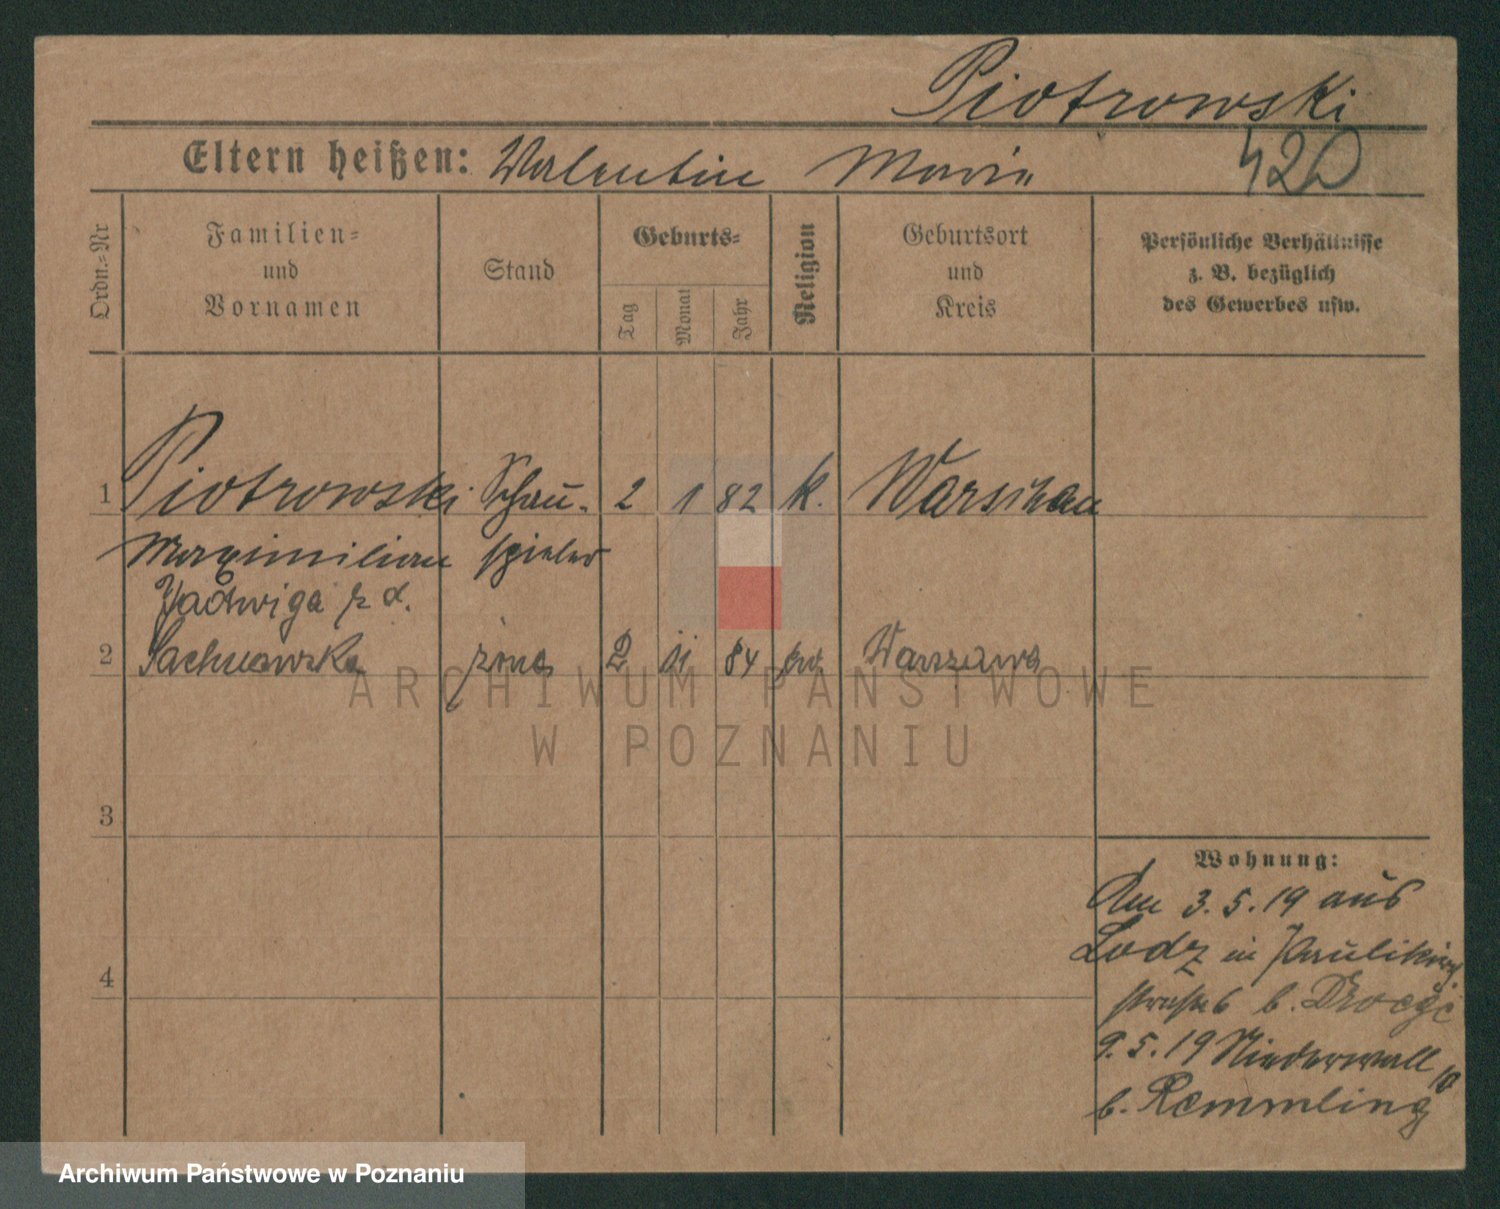 Piotrowski
Eltern heißen: Valentin Marie
420
Ordn.-Nr
Familien-
und
Vornamen
Stand
Geburts-
Tag
Monat
Jahr
Religion
Geburtsort
und
Kreis
Persönliche Verhältnisse
z. B. bezüglich
des Gewerbes usw.
1 Piotrowski Schau- 2 1 82 k. Warschau
Maximilian spieler
Jadwiga z d.
2 żona 2 11 84 Warszawa
3
4
Wohnung:
Am 3.5.19 aus
Lodz in Paulikirch
straße 6 b.
9.5.19 Niederwall
10
b. Remmling
ARCHIWUM PAŃSTWOWE
W POZNANIU
Archiwum Państwowe w Poznaniu